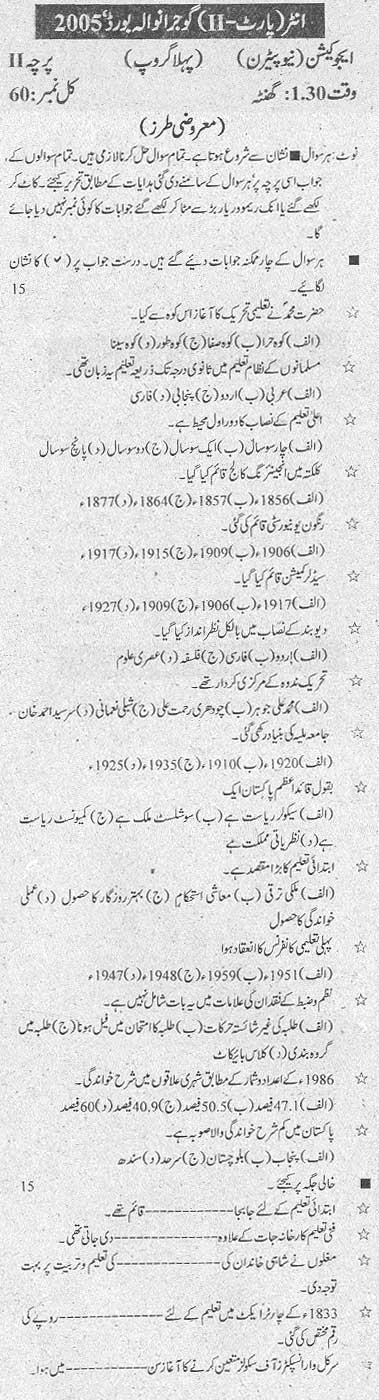 انٹر (پارٹ-II) گوجرانوالہ بورڈ، 2005ء
ایجوکیشن (نیو پیٹرن) (پہلا گروپ) پرچہ II
وقت 1.30 گھنٹہ کل نمبر: 60
(معروضی طرز)
نوٹ: ہر سوال ■ نشان سے شروع ہوتا ہے۔ تمام سوال حل کرنا لازمی ہیں۔ تمام سوالوں کے
جواب اسی پرچہ پر ہر سوال کے سامنے دی گئی ہدایات کے مطابق تحریر کیجئے۔ کاٹ کر
لکھے گئے یا انک ریموور یا ربڑ سے مٹا کر لکھے گئے جوابات کا کوئی نمبر نہیں دیا جائے
گا۔
■ ہر سوال کے چار ممکنہ جوابات دیئے گئے ہیں۔ درست جواب پر (✓) کا نشان
لگائیے۔ 15
☆ حضرت محمدؐ نے تعلیمی تحریک کا آغاز اس کوہ سے کیا۔
(الف) کوہ حرا (ب) کوہ صفا (ج) کوہ طور (د) کوہ سینا
☆ مسلمانوں کے نظام تعلیم میں ثانوی درجہ تک ذریعہ تعلیم یہ زبان تھی۔
(الف) عربی (ب) اردو (ج) پنجابی (د) فارسی
☆ اعلیٰ تعلیم کے نصاب کا دور اول محیط ہے۔
(الف) چار سو سال (ب) ایک سو سال (ج) دو سو سال (د) پانچ سو سال
☆ کلکتہ میں انجینئرنگ کالج قائم کیا گیا۔
(الف) 1856ء (ب) 1857ء (ج) 1864ء (د) 1877ء
☆ رنگون یونیورسٹی قائم کی گئی۔
(الف) 1906ء (ب) 1909ء (ج) 1915ء (د) 1917ء
☆ سیڈلر کمیشن قائم کیا گیا۔
(الف) 1917ء (ب) 1906ء (ج) 1909ء (د) 1927ء
☆ دیوبند کے نصاب میں بالکل نظر انداز کیا گیا۔
(الف) اردو (ب) فارسی (ج) فلسفہ (د) عصری علوم
☆ تحریک ندوہ کے مرکزی کردار تھے۔
(الف) محمد علی جوہر (ب) چودھری رحمت علی (ج) شبلی نعمانی (د) سرسید احمد خان
☆ جامعہ ملیہ کی بنیاد رکھی گئی۔
(الف) 1920ء (ب) 1910ء (ج) 1935ء (د) 1925ء
☆ بقول قائداعظم پاکستان ایک
(الف) سیکولر ریاست ہے (ب) سوشلسٹ ملک ہے (ج) کمیونسٹ ریاست
ہے (د) نظریاتی مملکت ہے
☆ ابتدائی تعلیم کا بڑا مقصد ہے۔
(الف) ملکی ترقی (ب) معاشی استحکام (ج) بہتر روزگار کا حصول (د) عملی
خواندگی کا حصول
☆ پہلی تعلیمی کانفرنس کا انعقاد ہوا
(الف) 1951ء (ب) 1959ء (ج) 1948ء (د) 1947ء
☆ نظم و ضبط کے فقدان کی علامات میں یہ بات شامل نہیں ہے۔
(الف) طلبہ کی غیر شائستہ حرکات (ب) طلبہ کا امتحان میں فیل ہونا (ج) طلبہ میں
گروہ بندی (د) کلاس بائیکاٹ
☆ 1986ء کے اعداد و شمار کے مطابق شہری علاقوں میں شرح خواندگی۔
(الف) 47.1 فیصد (ب) 50.5 فیصد (ج) 40.9 فیصد (د) 60 فیصد
☆ پاکستان میں کم شرح خواندگی والا صوبہ ہے۔
(الف) پنجاب (ب) بلوچستان (ج) سرحد (د) سندھ
■ خالی جگہ پر کیجئے۔ 15
☆ ابتدائی تعلیم کے لئے جابجا ------------ قائم تھے۔
☆ فنی تعلیم کارخانہ جات کے علاوہ ------------ دی جاتی تھی۔
☆ مغلوں نے شاہی خاندان کی ------------ کی تعلیم و تربیت پر بہت
توجہ دی۔
☆ 1833ء کے چارٹر ایکٹ میں تعلیم کے لئے ------------ روپے کی
رقم مختص کی گئی۔
☆ سرکل وار انسپکٹرز آف سکولز متعین کرنے کا آغاز سن ------------ میں ہوا۔